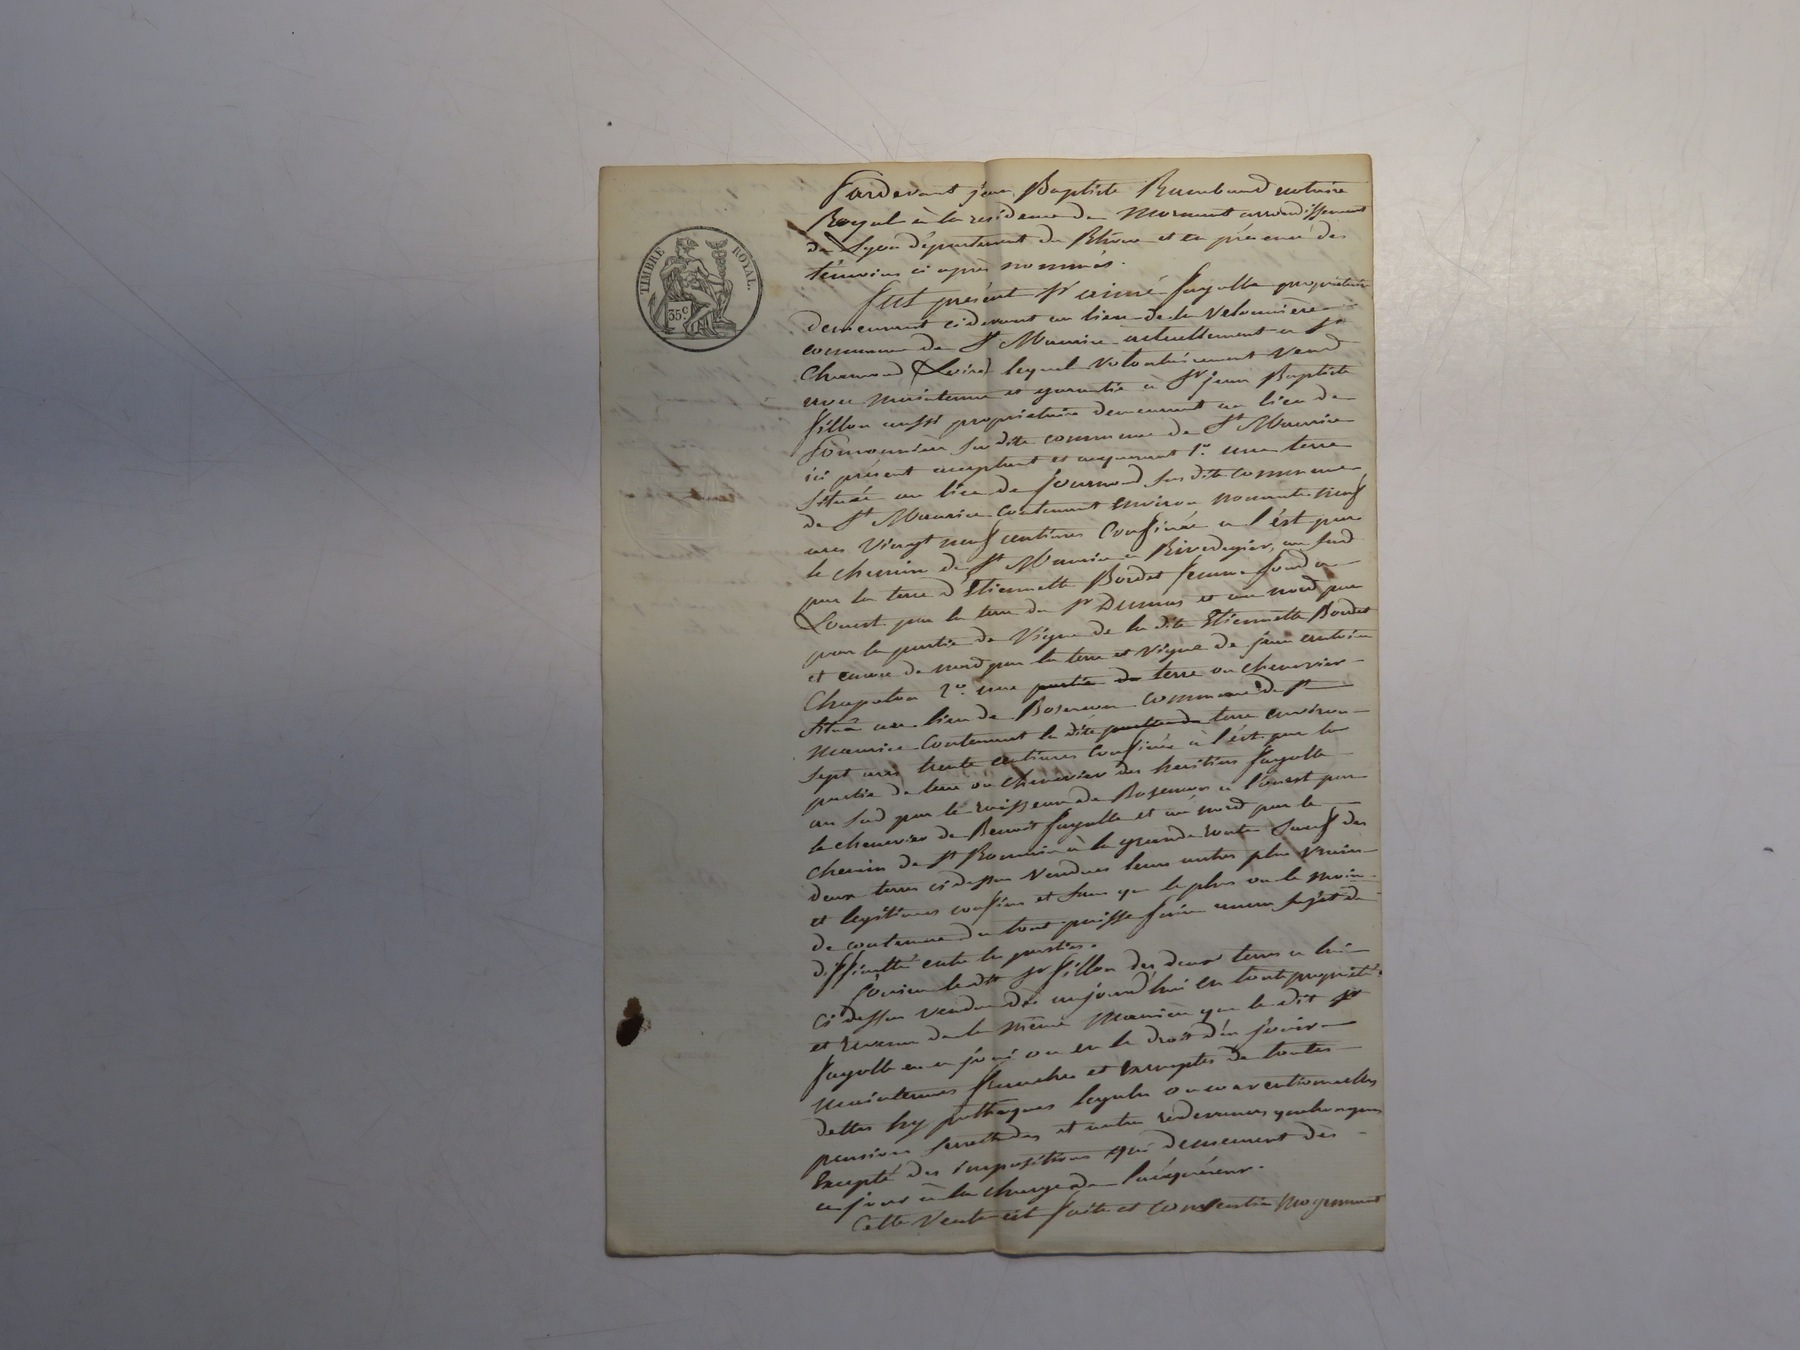 TIMBRE ROYAL.
35c
Pardevant jean Baptiste Rambaud notaire
Royal à la residence de Mornant arrondissement
de Lyon département du Rhône et en présence des
témoins ci après nommés.
Fut présent Sr aimé fayolle propriétaire
demeurant cidevant au lieu de la
commune de St Maurice actuellement à St
Chamond (Loire) lequel volontairement vend
avec maintenue et garantie à Sr jean Baptiste
fillon aussi propriétaire demeurant au lieu de
susdite commune de St Maurice
ici présent acceptant et acquerant 1º une terre
située au lieu de journond susdite commune
de St Maurice contenant environ nonante neuf
ares vingt neuf centiares Confinée à l'ést par
le chemin de St Maurice à Rivedegier, au sud
par la terre d'Etiennette Bordet femme fond à
Louest par la terre du Sr Dumas et au nord par
par la partie de vigne de la dite Etiennette Bordet
et encore de nord par la terre et vigne de jean antoine
Chapelon 2º une partie de terre ou chenevier
située au lieu de Bosencon commune de St
Maurice contenant la dite partie de terre environ
sept ares trente centiares Confinée à l'ést par la
partie de terre ou chenevier des heritiers fayolle
au sud par le ruisseau de Bosencon à l'ouest par
le chenevier de Benoit fayolle et au nord par le
chemin de St Romain à la grande route Sauf des
deux terres cidessus vendues leurs autres plus vrais
et legitimes confins et sans que le plus ou le moins
de contenue du tout puisse faire aucun sujet de
difficulté entre les parties.
Jouira le dit Sr fillon des deux terres a lui
ci dessus vendues dès aujourd'hui en toute propriété
et de la même manière que le dit Sr
fayolle en a joui ou eu le droit d'en jouir
maintenues franches et exemptes de toutes
dettes hypothèques legales ou conventionnelles
pensions servitudes et autres redevances quelconques
Excepté des impositions qui demeurent dès
ce jour à la charge de l'acquéreur.
Cette vente est faite et consentie moyennant